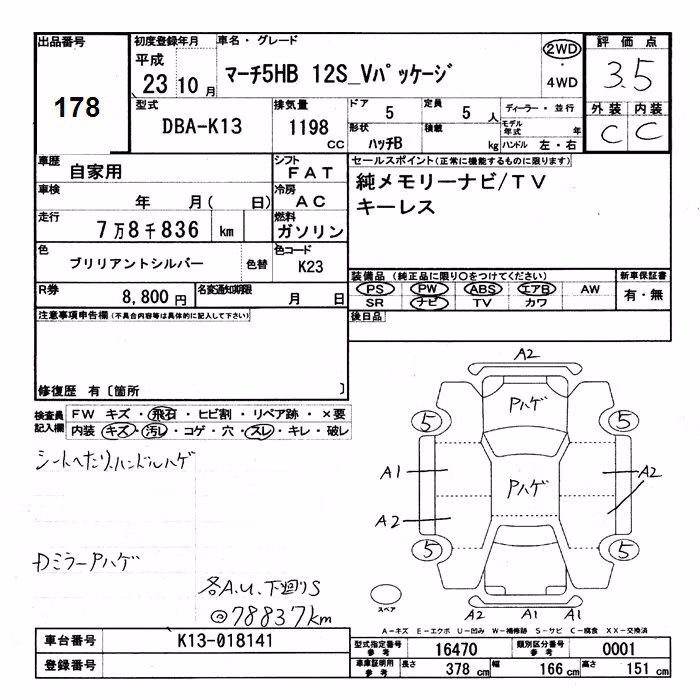 出品番号 178
初度登録年月 平成 23年 10月
車名・グレード マーチ5HB 12S_Vパッケージ
2WD・4WD
評価点 3.5
型式 DBA-K13
排気量 1198 CC
ドア 5
定員 5 人
ディーラー・並行
形状 ハッチB
積載 kg
モデル年式 年
ハンドル 左・右
外装 C 内装 C
車歴 自家用
シフト FAT
セールスポイント(正常に機能するものに限ります)
車検 年 月( 日)
冷房 AC
純メモリーナビ/TV
キーレス
走行 7万8千836 km
燃料 ガソリン
色 ブリリアントシルバー 色替
色コード K23
R券 8,800円
名変通知期限 月 日
装備品(純正品に限り○をつけてください) 新車保証書
PS PW ABS エアB AW 有・無
SR ナビ TV カワ
注意事項申告欄(不具合内容等は具体的に記入して下さい)
後日品
修復歴 有〔箇所 〕
検査員記入欄
FW キズ・飛石・ヒビ割・リペア跡・×要
内装 キズ・汚レ・コゲ・穴・スレ・キレ・破レ
シートへたり、ハンドルハゲ
DミラーPハゲ
各A.U.下廻りS
◎78837km
A2
Pハゲ
5 5
A1 Pハゲ A2
A2
5 5
スペア
A2 A1 A1
A-キズ E-エクボ U-凹み W-補修跡 S-サビ C-腐食 XX-交換済
車台番号 K13-018141
登録番号
型式指定番号 参考 16470
類別区分番号 参考 0001
車庫証明用 参考 長さ 378 cm 幅 166 cm 高さ 151 cm